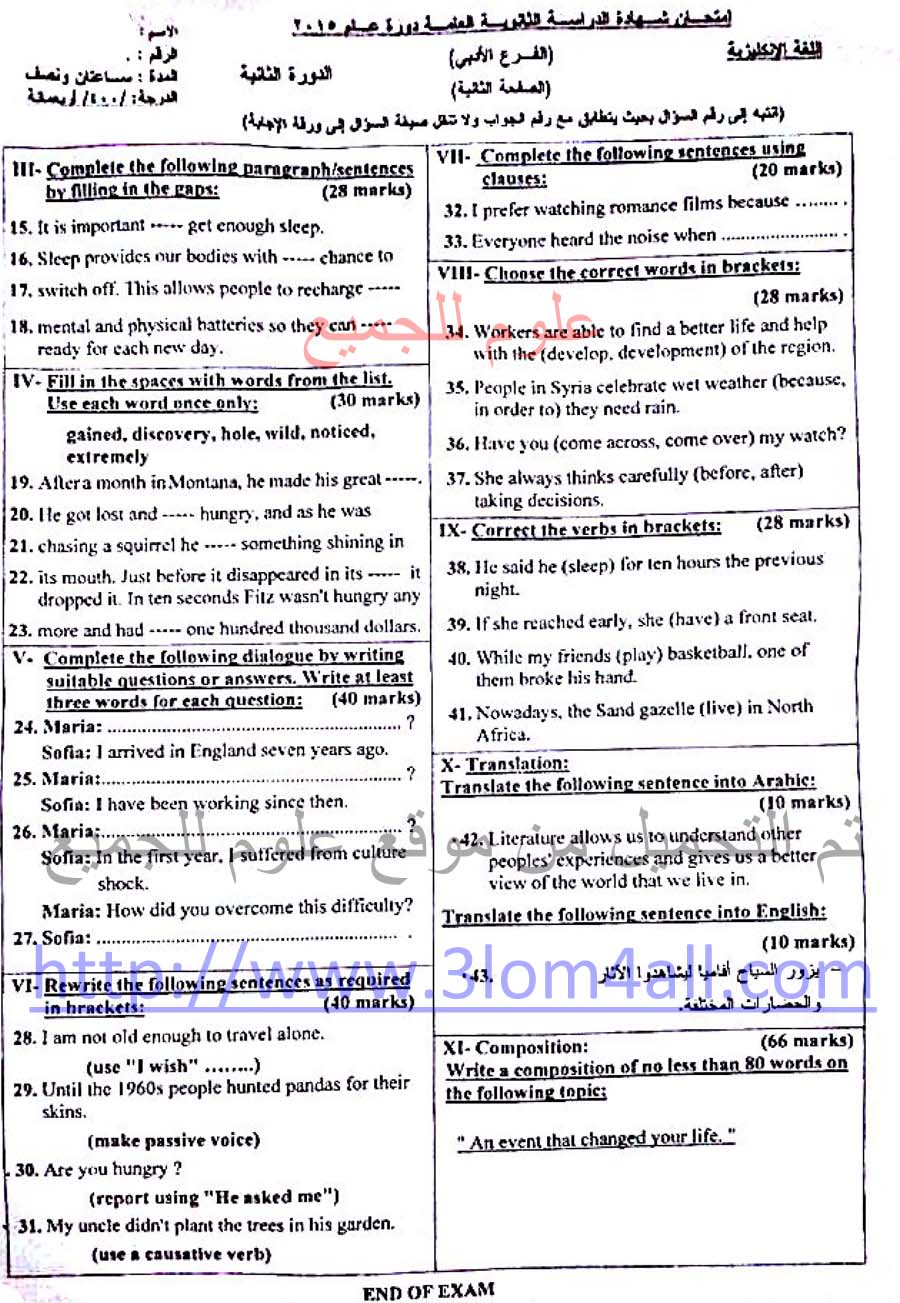 امتحان شهادة الدراسة الثانوية العامة دورة عام ٢٠١٥
الاسم :
اللغة الإنكليزية
(الفرع الأدبي)
الرقم :
الدورة الثانية
المدة : ساعتان ونصف
(الصفحة الثانية)
الدرجة: /٤٠٠/ أربعمائة
(انتبه إلى رقم السؤال بحيث يتطابق مع رقم الجواب ولا تنقل صيغة السؤال إلى ورقة الإجابة)
III- Complete the following paragraph/sentences
by filling in the gaps: (28 marks)
15. It is important ----- get enough sleep.
16. Sleep provides our bodies with ----- chance to
17. switch off. This allows people to recharge -----
18. mental and physical batteries so they can -----
ready for each new day.
IV- Fill in the spaces with words from the list.
Use each word once only: (30 marks)
gained, discovery, hole, wild, noticed,
extremely
19. After a month in Montana, he made his great -----.
20. He got lost and ----- hungry, and as he was
21. chasing a squirrel he ----- something shining in
22. its mouth. Just before it disappeared in its ----- it
dropped it. In ten seconds Fitz wasn't hungry any
23. more and had ----- one hundred thousand dollars.
V- Complete the following dialogue by writing
suitable questions or answers. Write at least
three words for each question: (40 marks)
24. Maria: ........................................................ ?
Sofia: I arrived in England seven years ago.
25. Maria:........................................................ ?
Sofia: I have been working since then.
26. Maria:........................................................ ?
Sofia: In the first year, I suffered from culture
shock.
Maria: How did you overcome this difficulty?
27. Sofia: ........................................................ .
VI- Rewrite the following sentences as required
in brackets: (40 marks)
28. I am not old enough to travel alone.
(use "I wish" ........)
29. Until the 1960s people hunted pandas for their
skins.
(make passive voice)
30. Are you hungry ?
(report using "He asked me")
31. My uncle didn't plant the trees in his garden.
(use a causative verb)
VII- Complete the following sentences using
clauses: (20 marks)
32. I prefer watching romance films because ........ .
33. Everyone heard the noise when ...................... .
VIII- Choose the correct words in brackets:
(28 marks)
34. Workers are able to find a better life and help
with the (develop, development) of the region.
35. People in Syria celebrate wet weather (because,
in order to) they need rain.
36. Have you (come across, come over) my watch?
37. She always thinks carefully (before, after)
taking decisions.
IX- Correct the verbs in brackets: (28 marks)
38. He said he (sleep) for ten hours the previous
night.
39. If she reached early, she (have) a front seat.
40. While my friends (play) basketball, one of
them broke his hand.
41. Nowadays, the Sand gazelle (live) in North
Africa.
X- Translation:
Translate the following sentence into Arabic:
(10 marks)
42. Literature allows us to understand other
peoples' experiences and gives us a better
view of the world that we live in.
Translate the following sentence into English:
(10 marks)
43. - يزور السياح أفاميا ليشاهدوا الآثار
والحضارات المختلفة.
XI- Composition: (66 marks)
Write a composition of no less than 80 words on
the following topic:
" An event that changed your life. "
END OF EXAM
علوم للجميع
تم التحميل من موقع علوم للجميع
http://www.3lom4all.com